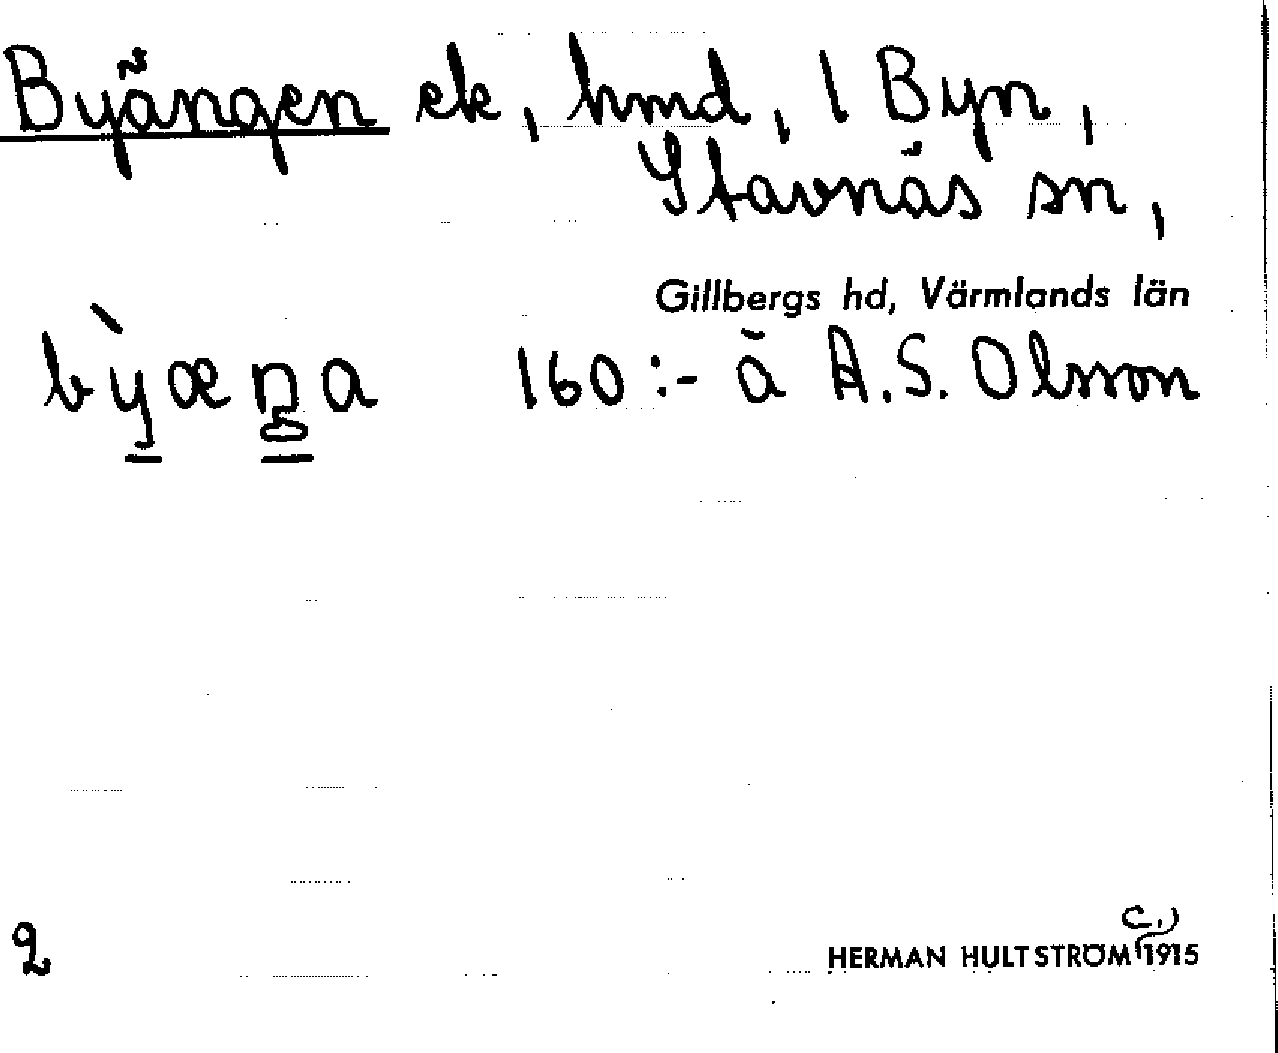 Byängen ek, hmd, 1 Byn,
Stavnäs sn,
Gillbergs hd, Värmlands län
bỳæŋa 160:- ä A.S. Olsson
2 HERMAN HULTSTRÖM (c.) 1915